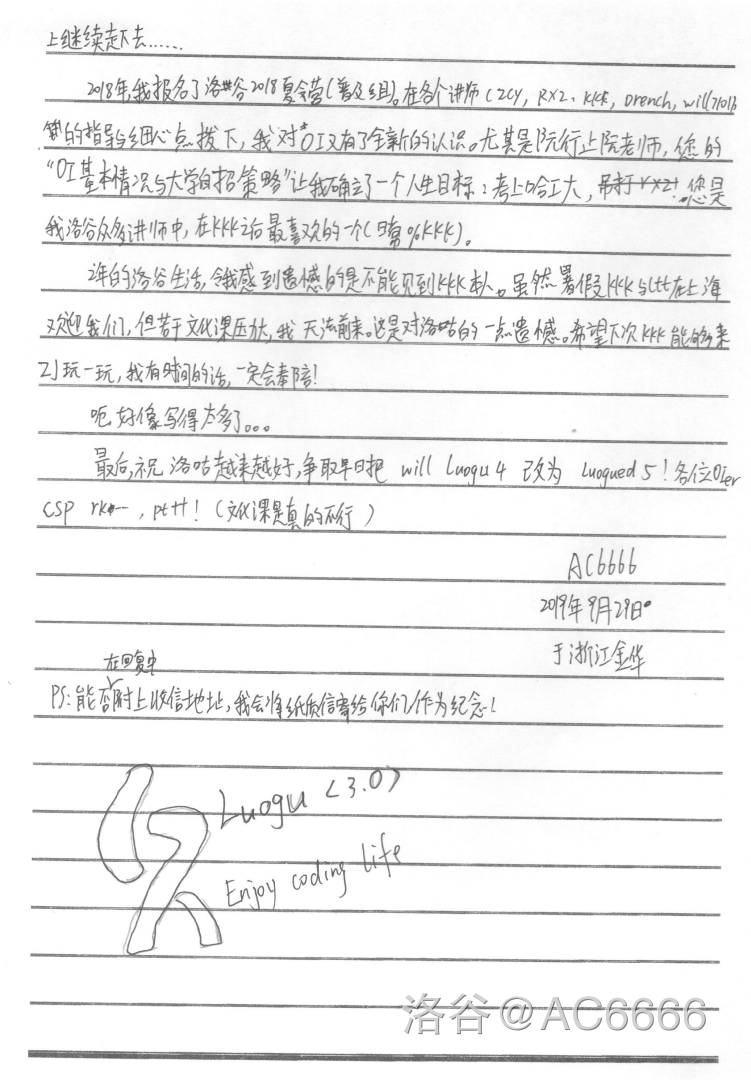 上继续走下去……
2018年,我报名了洛谷2018夏令营(普及组)。在各个讲师(ZCY, RXZ, KKK, Drench, will7101
等)的指导与细心点拨下,我对OI又有了全新的认识。尤其是阮行止阮老师,您的
“OI基本情况与大学自招策略”让我确立了一个人生目标:考上哈工大,吊打rxz!您是
我洛谷众多讲师中,在KKK之后最喜欢的一个(日常%KKK)。
2年的洛谷生活,令我感到遗憾的是不能见到KKK本人。虽然暑假KKK与ltt在上海
欢迎我们,但苦于文化课压力大,我无法前来。这是对洛咕的一点遗憾。希望下次KKK能够来
ZJ玩一玩,我有时间的话,一定会奉陪!
呃,好像写得太多了。。。
最后,祝洛咕越来越好,争取早日把 will Luogu 4 改为 Luogued 5!各位OIer
CSP rk--, pt++!(文化课是真的不行)
AC6666
2019年9月29日
于浙江金华
PS:能否在回复中附上收信地址,我会将纸质信寄给你们作为纪念!
Luogu (3.0)
Enjoy coding life
洛谷@AC6666